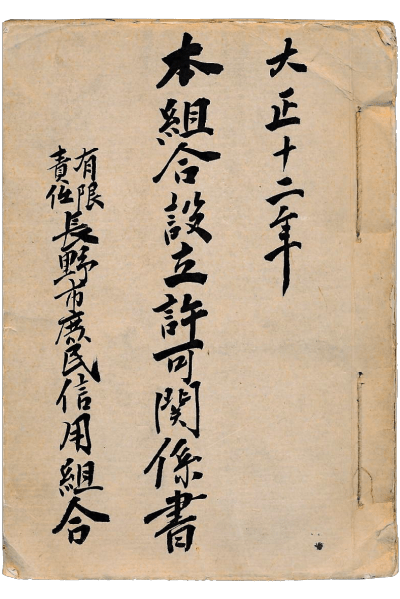 大正十二年
本組合設立許可関係書
有限責任長野市庶民信用組合